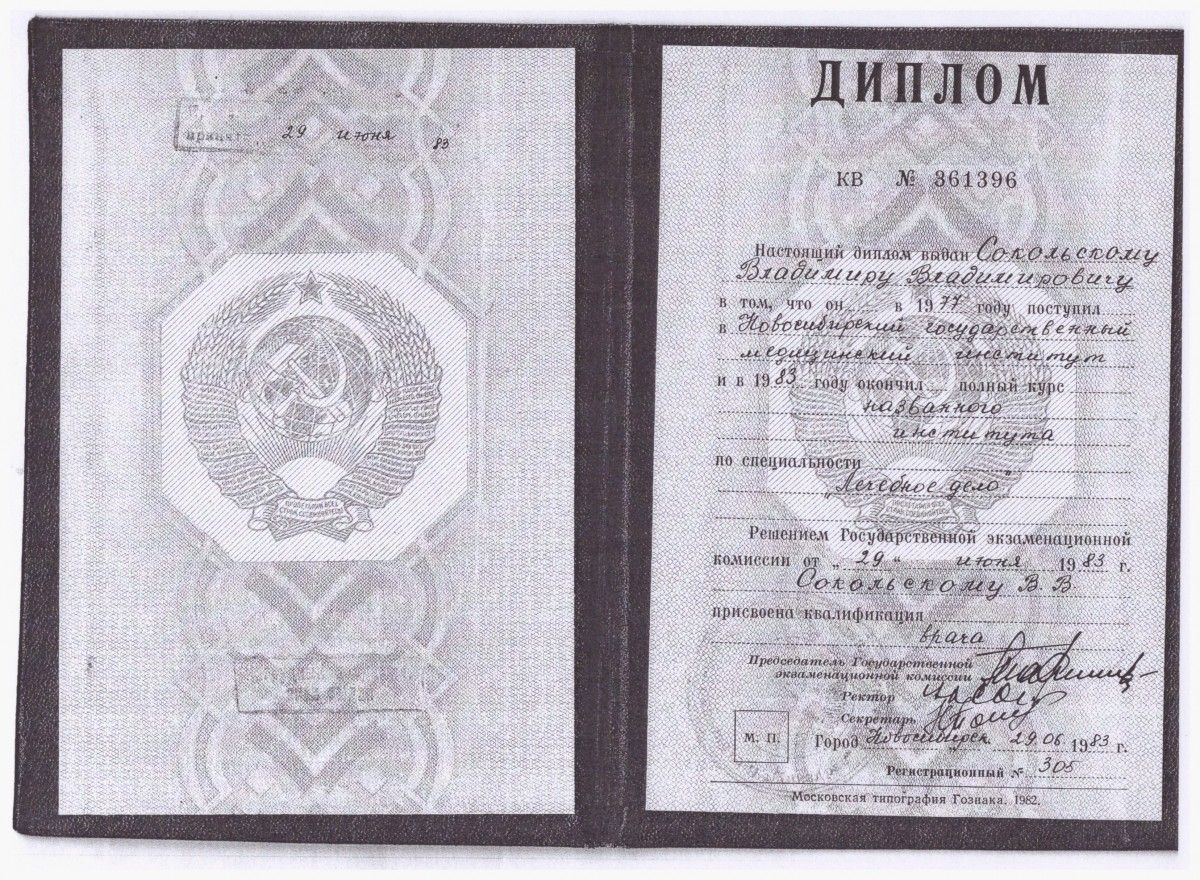 29 июня 83
ДИПЛОМ
КВ № 361396
Настоящий диплом выдан Сокольскому
Владимиру Владимировичу
в том, что он в 1977 году поступил
в Новосибирский государственный
медицинский институт
и в 1983 году окончил полный курс
названного
института
по специальности
"Лечебное дело"
Решением Государственной экзаменационной
комиссии от „29“ июня 1983 г.
Сокольскому В. В
присвоена квалификация
врача
Председатель Государственной
экзаменационной комиссии
Ректор
Секретарь
М. П.
Город Новосибирск 29.06 1983 г.
Регистрационный № 305
Московская типография Гознака. 1982.